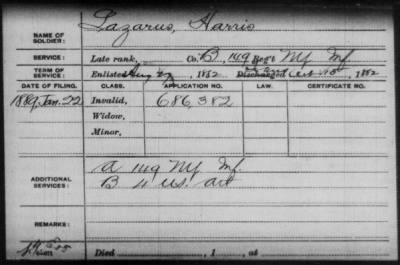 Lazarus, Harris
NAME OF SOLDIER:
SERVICE: Late rank, Co. B, 149 Reg't NY Inf.
TERM OF SERVICE: Enlisted Aug 27, 1862 Discharged Oct, 1862
DATE OF FILING. CLASS. APPLICATION NO. LAW. CERTIFICATE NO.
1889, Jan. 22 Invalid, 686,382
Widow,
Minor,
A 149 NY Inf.
ADDITIONAL SERVICES: B 4 U.S. Art
REMARKS:
Died, 1, at